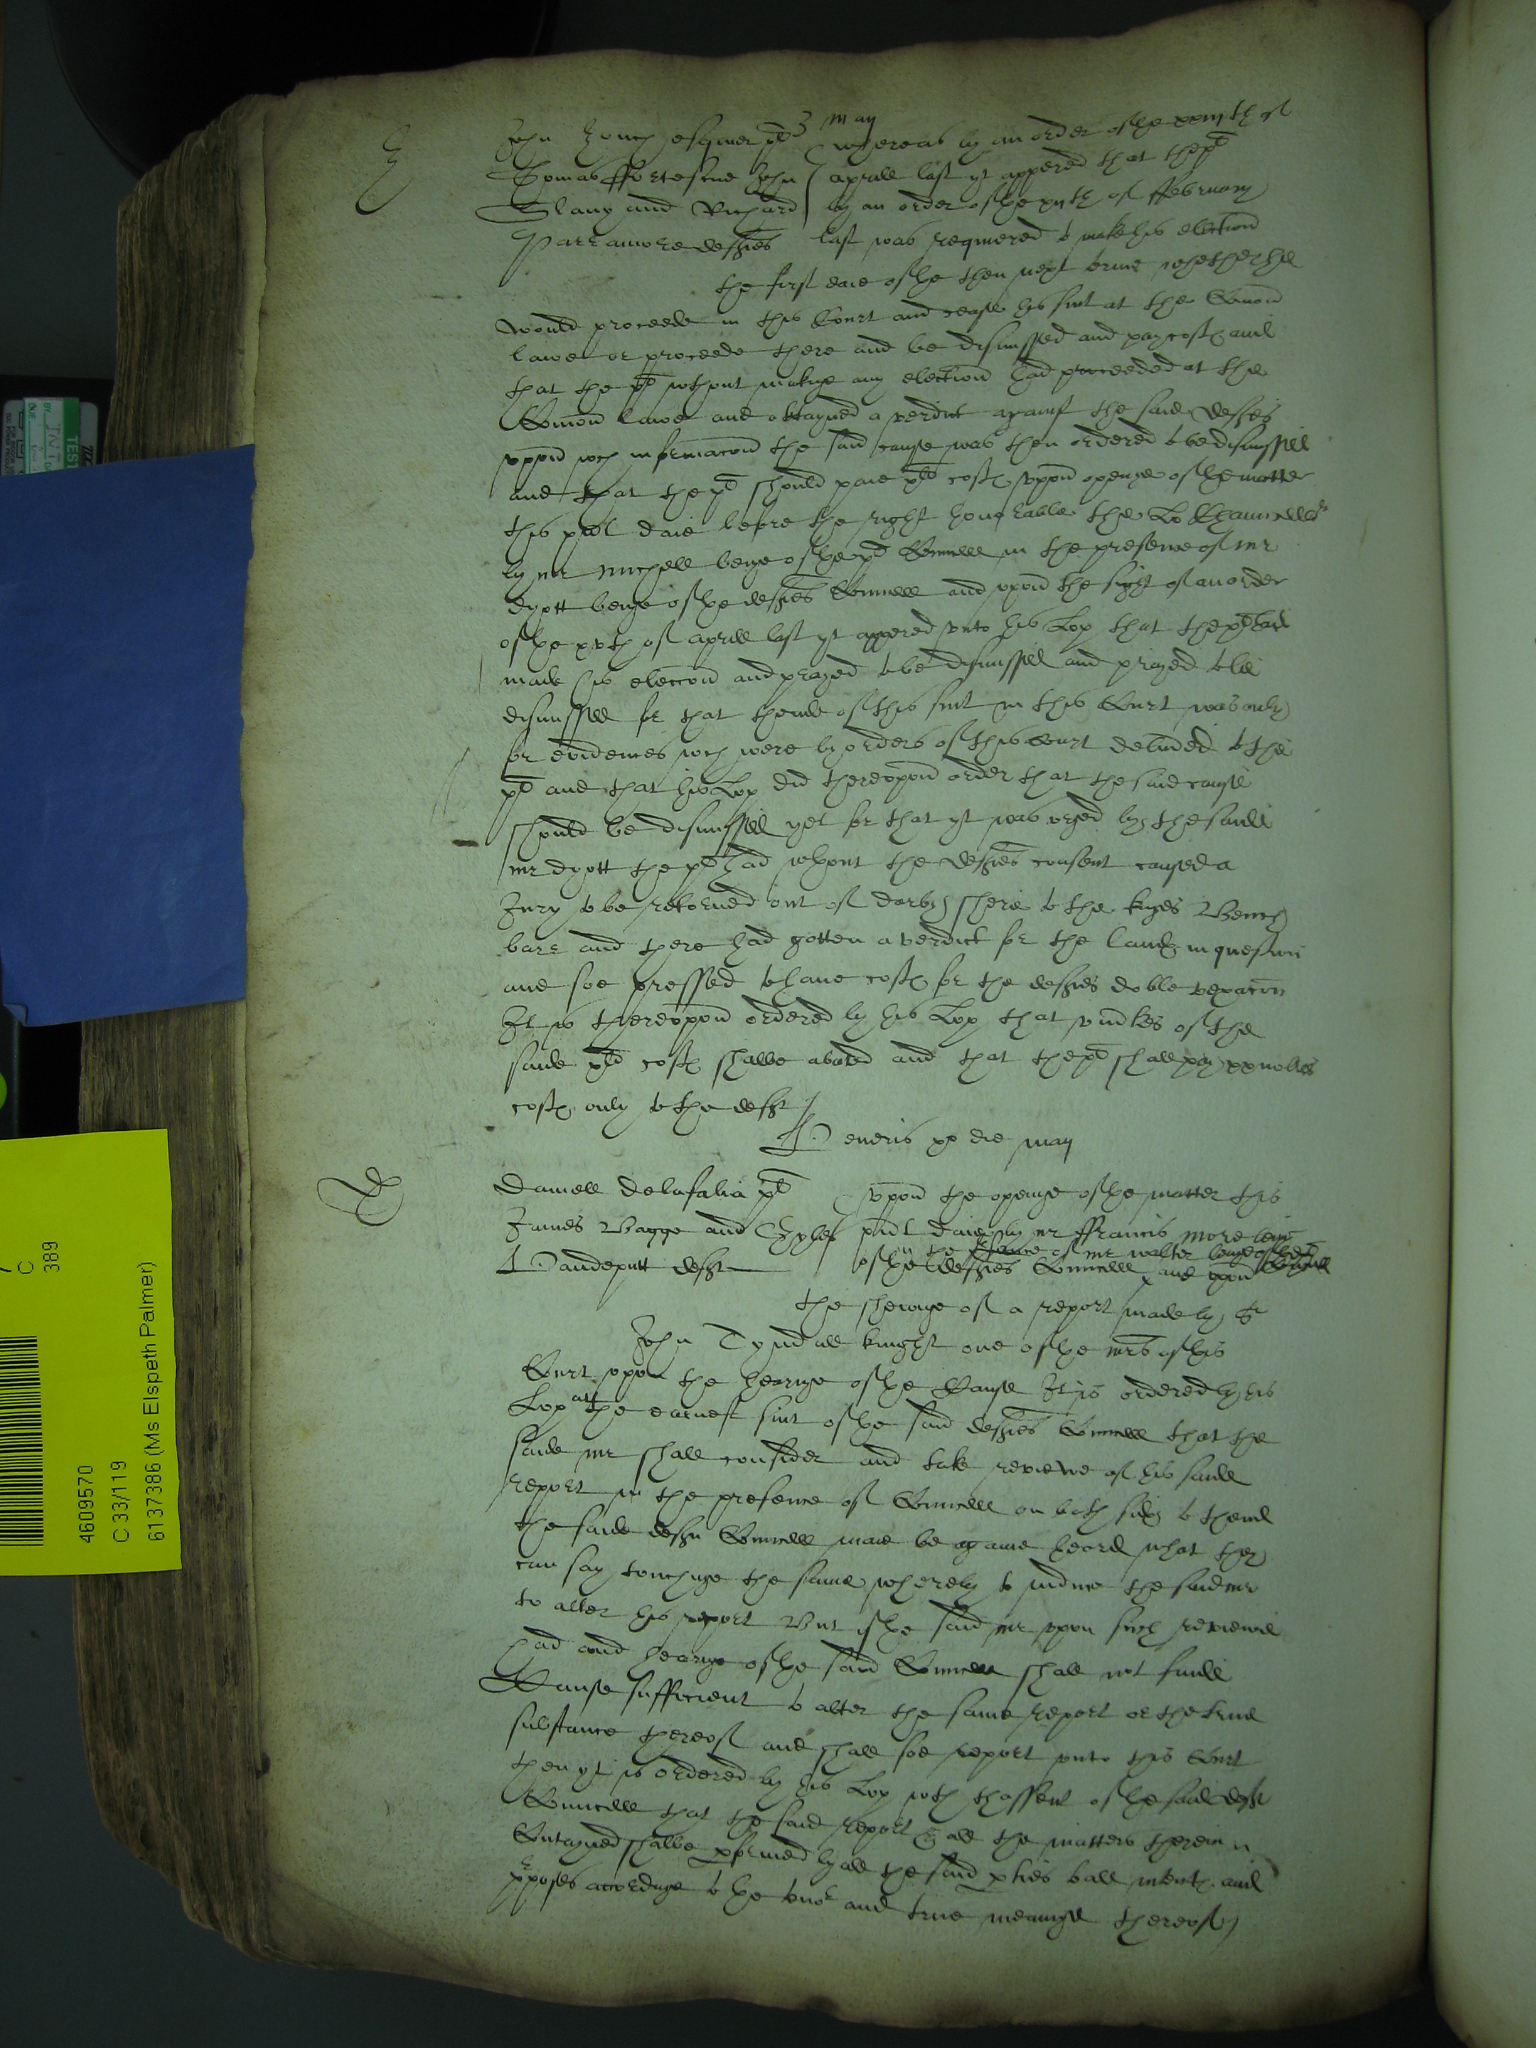 Z
3 May
John Zouch esquier pl
Thomas Ffortescue John
Slany and Richard
Parramore defts
Whereas by an order of the xxvijth of
Aprill last yt appered that the pl
by an order of the xijth of February
last was required to make his election
the first daie of the then next terme whether he
would proceede in this Court and cease his suit at the Comon
lawe or proceede there and be dismissed and pay costes and
that the pl without makinge any election had proceeded at the
Comon lawe and obtayned a verdict against the said defts
uppon wch informacon the said cause was then ordered to be dismissed
and that the pl should paie costes uppon openge of the matter
this pnt daie before the right honorable the Lo Chauncellor
by mr Michell beinge of the pl Councell in the presence of mr
dyott beinge of the defts Councell and uppon the sight of an order
of the xvth of Aprill last yt appered unto his Lop that the pl had
made his eleccon and prayed to be dismissed and prayed to be
dismissed for that thende of this suit in this Court was only
for evidences wch were by orders of this Court delivered to the
pl and that his Lop did thereuppon order that the said cause
should be dismissed yet for that yt was urged by the saide
mr dyott the pl had without the defts consent caused a
Jury to be retorned out of Darby sheire to the kinges Bench
barr and there had gotten a verdict for the landes in question
and soe pressed to have costes for the defts doble vexacon
It is thereuppon ordered by his Lop that of the
saide costes shalbe abated and that the pl shall pay xx nobles
costes only to the deft
Veneris xx die May
D
Daniell Delafalia pl
James Bagge and Gyles
Vandeputt deft
Uppon the openge of the matter this
pnt daie by mr Ffrancis More beinge
of the defts Councell in the of mr Walter beinge of the pl Councell and upon
the shewinge of a report made by Sr
John Tyndall knight one of the mrs of this
Court uppon the hearinge of the Cause It is ordered by his
Lop att the earnest suit of the said defts Councell that the
saide mr shall consider and take reviewe of his saide
report in the presence of Councell on both sides to thend
the saide defts Councell maie be againe heard what they
can say touchinge the same wherby to induce the said mr
to alter his report But if the said mr uppon such reviewe
had and hearinge of the said Councell shall not finde
Cause sufficient to alter the same report or the true
substance thereof and shall soe report unto this Court
then yt is ordered by his Lop with thassent of the saide defts
Councell that the said report & all the matters therein
Contayned shalbe pformed by all the said pties to all intents and
pposes accordinge to the tenor and true meaninge thereof
C
389
4609570
C 33/119
6137386 (Ms Elspeth Palmer)